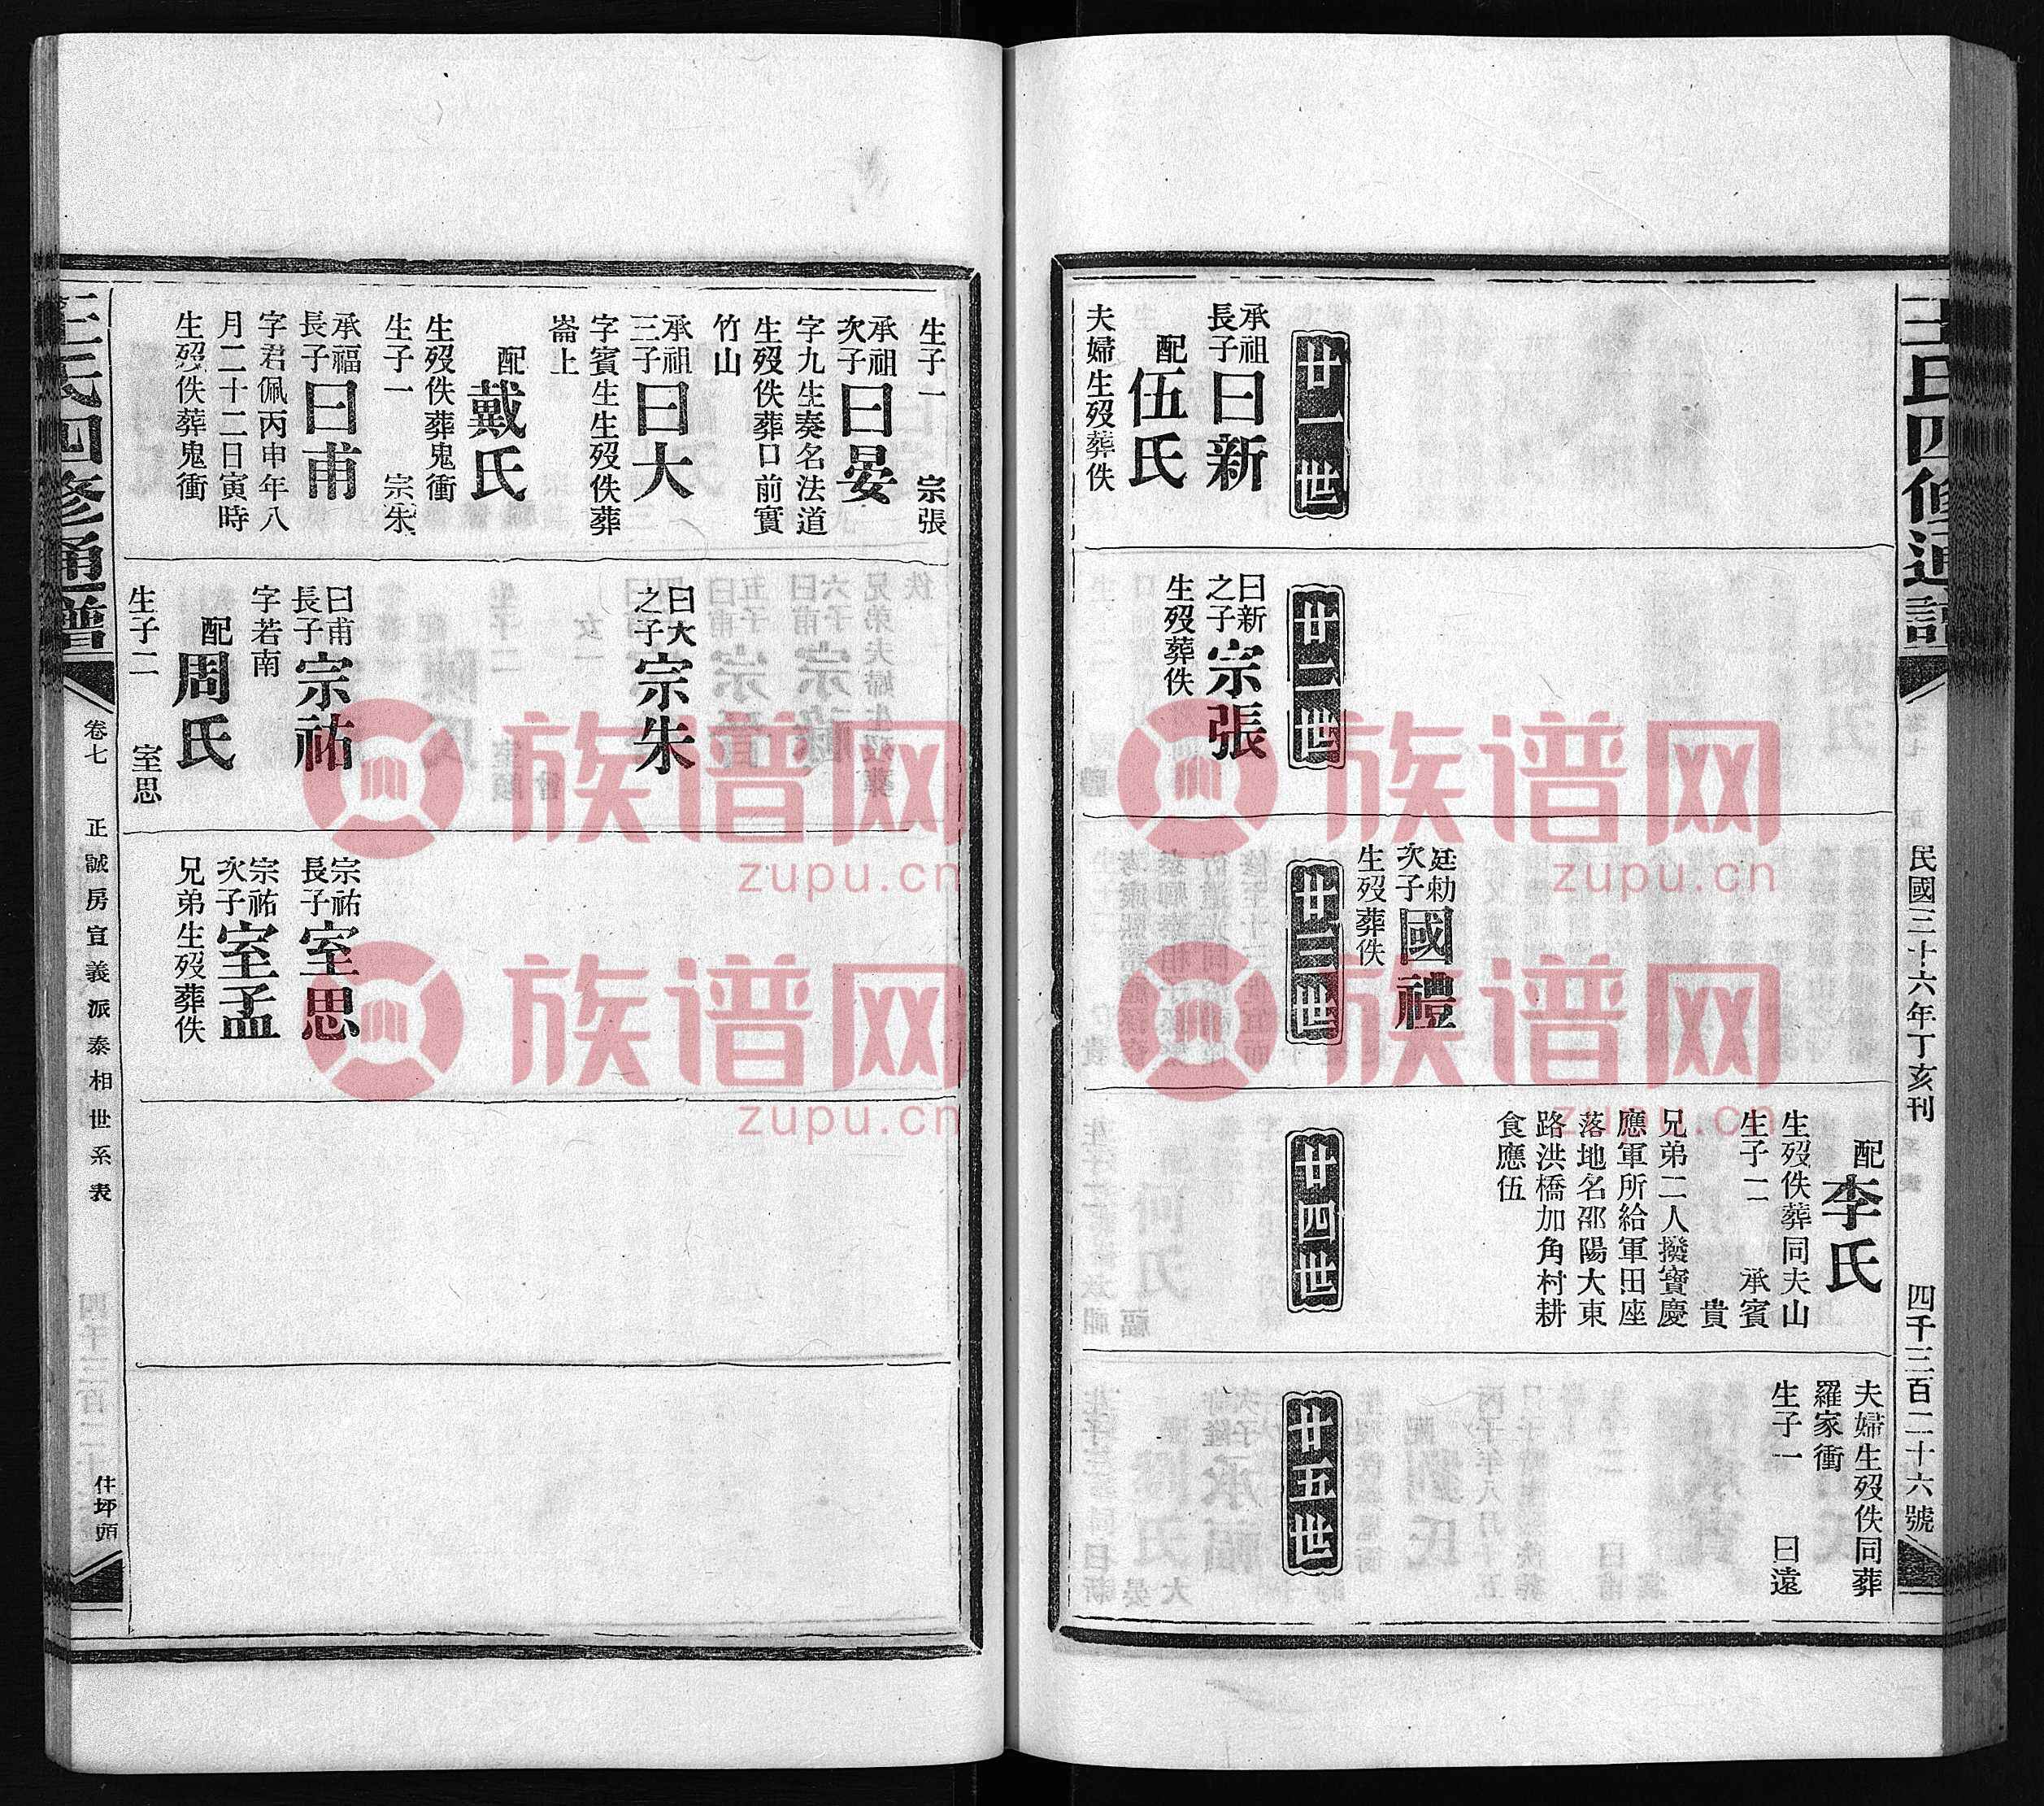 王氏四修通譜
民國三十六年丁亥刊
四千三百二十六號
配李氏
生歿佚葬同夫山
生子二　承賓
貴
兄弟二人撥寶慶
應軍所給軍田座
落地名邵陽大東
路洪橋加角村耕
食應伍
夫婦生歿佚同葬
羅家衝
生子一　曰遠
廷勅
次子
國禮
生歿葬佚
廿一世
廿二世
廿三世
廿四世
廿五世
承祖
長子
曰新
配伍氏
夫婦生歿葬佚
曰新
之子
宗張
生歿葬佚
生子一　宗張
承祖
次子
曰晏
字九生奏名法道
生歿佚葬口前實
竹山
承祖
三子
曰大
字賓生生歿佚葬
崙上
配戴氏
生歿佚葬鬼衝
生子一　宗朱
承福
長子
曰甫
字君佩丙申年八
月二十二日寅時
生歿佚葬鬼衝
曰大
之子
宗朱
曰甫
長子
宗祐
字若南
配周氏
生子二　室思
宗祐
長子
室思
宗祐
次子
室孟
兄弟生歿葬佚
王氏四修通譜
卷七
正誠房宣義派泰相世系表
住坪頭
族谱网
zupu.cn
族谱网
zupu.cn
族谱网
zupu.cn
族谱网
zupu.cn